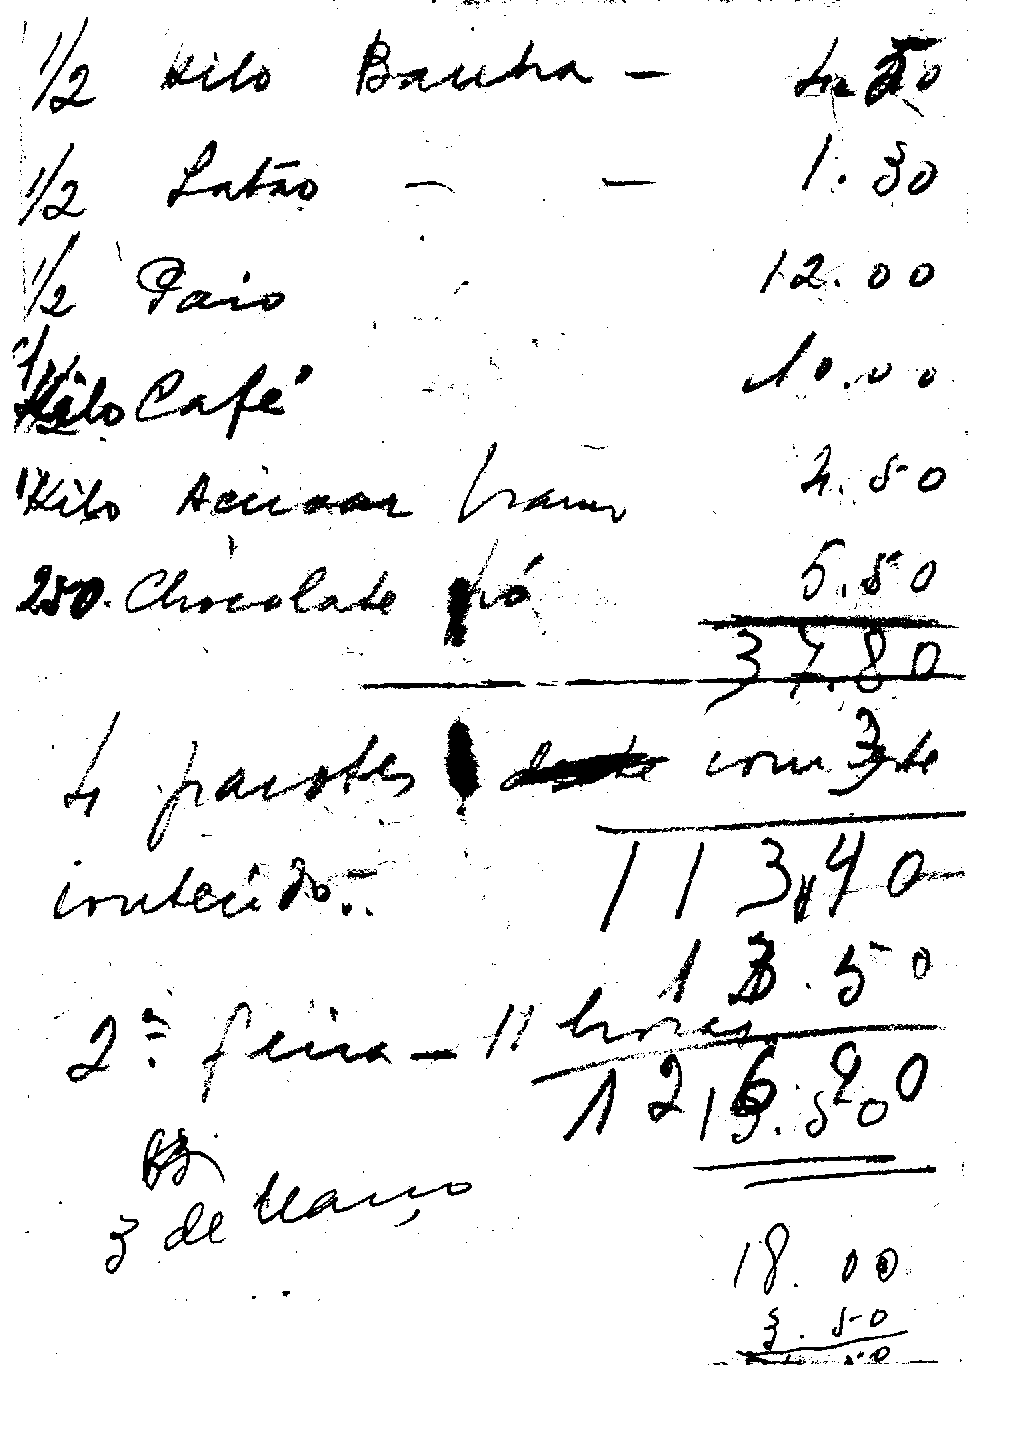 1/2 Kilo Banha — 4.50
1/2 Latão — — 1.30
1/2 Paio 12.00
Kilo Café 10.00
1 Kilo Açucar branco 4.50
250. Chocolate pó 5.50
37.80
4 pacotes com este
3
conteúdo. 113,40
13.50
2ª feira — 11 horas
126,90
3 de Março
18.00
3.50